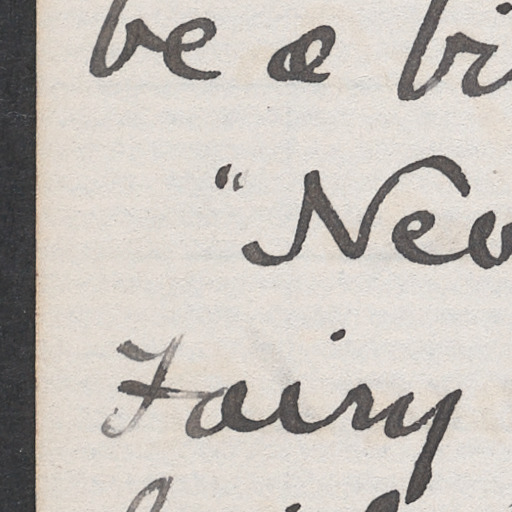 be a bi
"Nev
Fairy